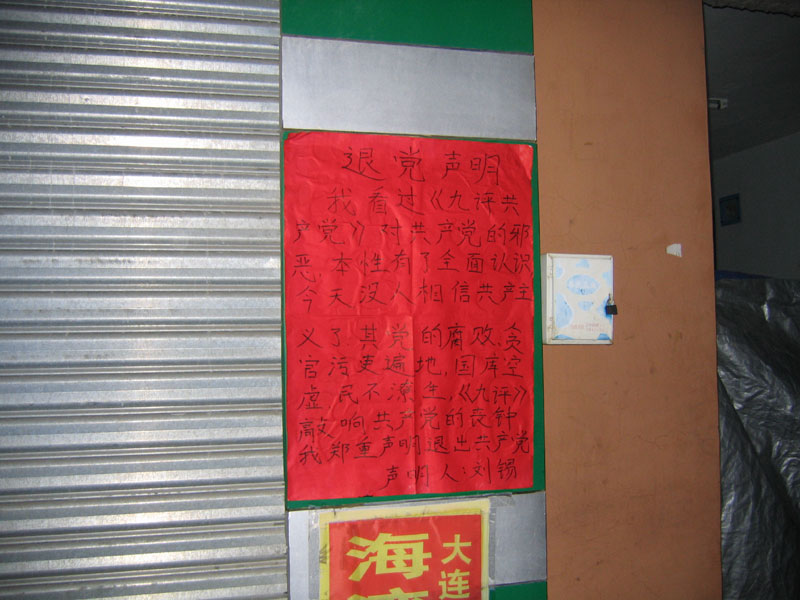 退党声明
我看过《九评共
产党》对共产党的邪
恶本性有了全面认识
今天没人相信共产主
义了.其党的腐败.贪
官污吏遍地,国库空
虚民不潦生,《九评》
敲响共产党的丧钟
我郑重声明退出共产党
声明人:刘锡
大连
海